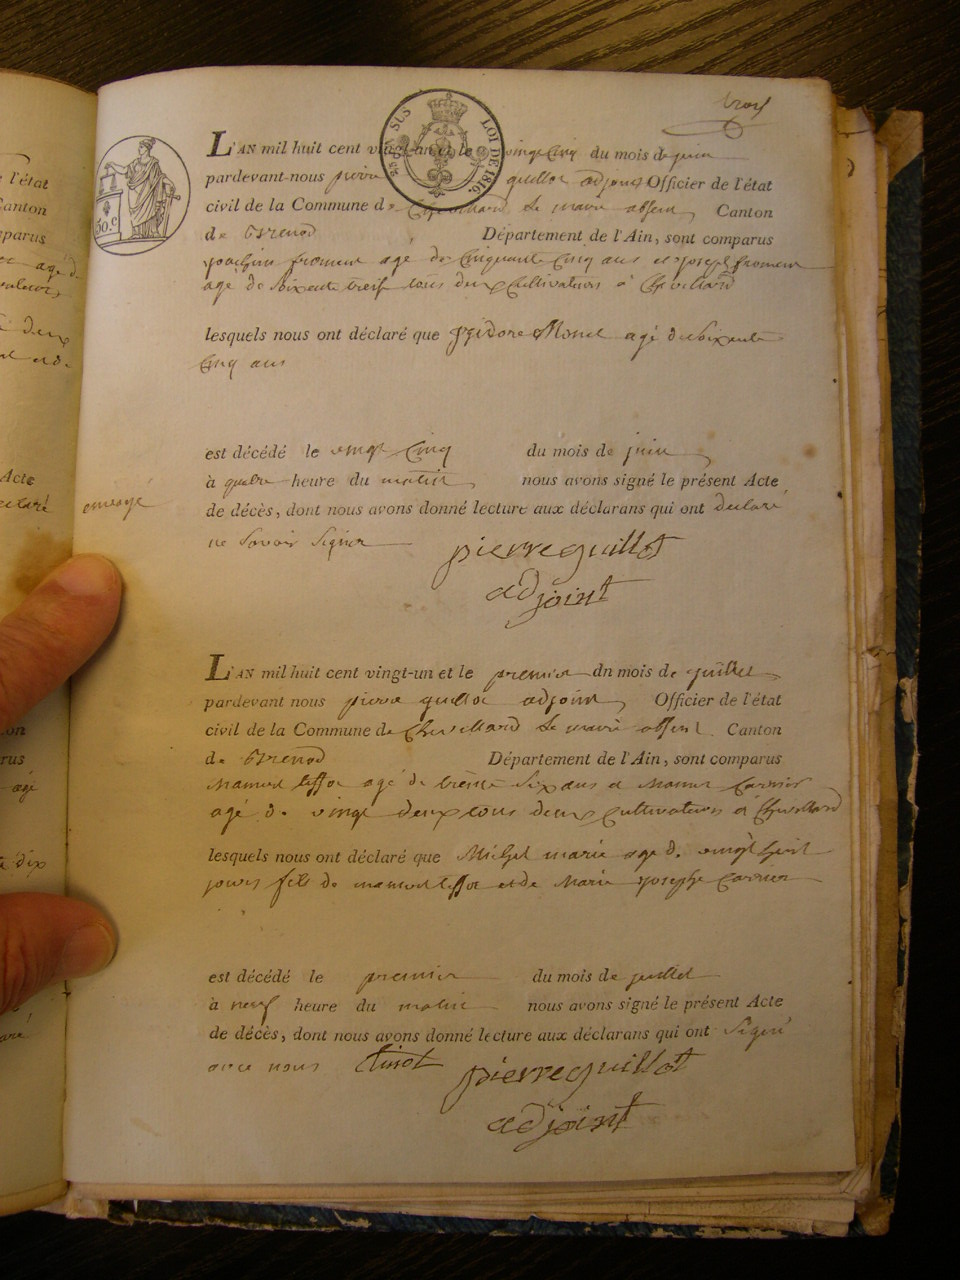 trois
25 C. SUS LOI DE 1816.
50.c
L'AN mil huit cent vingt-un et le vingt Cinq du mois de juin
pardevant-nous pierre guillot adjoint Officier de l'état
civil de la Commune de Chevillard Le maire absent Canton
de Brenod Département de l'Ain, sont comparus
joachim froment agé de Cinquante Cinq ans et joseph froment
agé de soixente treise tous deux Cultivateurs à Chevillard
lesquels nous ont déclaré que ysidore Monet agé de soixente
Cinq ans
est décédé le vingt Cinq du mois de juin
à quatre heure du matin nous avons signé le présent Acte
de décès, dont nous avons donné lecture aux déclarans qui ont declaré
ne Savoir Signer pierre guillot
adjoint
L'AN mil huit cent vingt-un et le premier du mois de juillet
pardevant nous pierre guillot adjoint Officier de l'état
civil de la Commune de Chevillard Le maire absent Canton
de Brenod Département de l'Ain, sont comparus
agé de trente Six ans et Carrier
agé de vingt deux tous deux Cultivateurs a Chevillard
lesquels nous ont déclaré que Michel marie age de vingt huit
jours fils de et de Marie Josephe Carrier
est décédé le premier du mois de juillet
à neuf heure du matin nous avons signé le présent Acte
de décès, dont nous avons donné lecture aux déclarans qui ont Signé
avec nous pierre guillot
adjoint